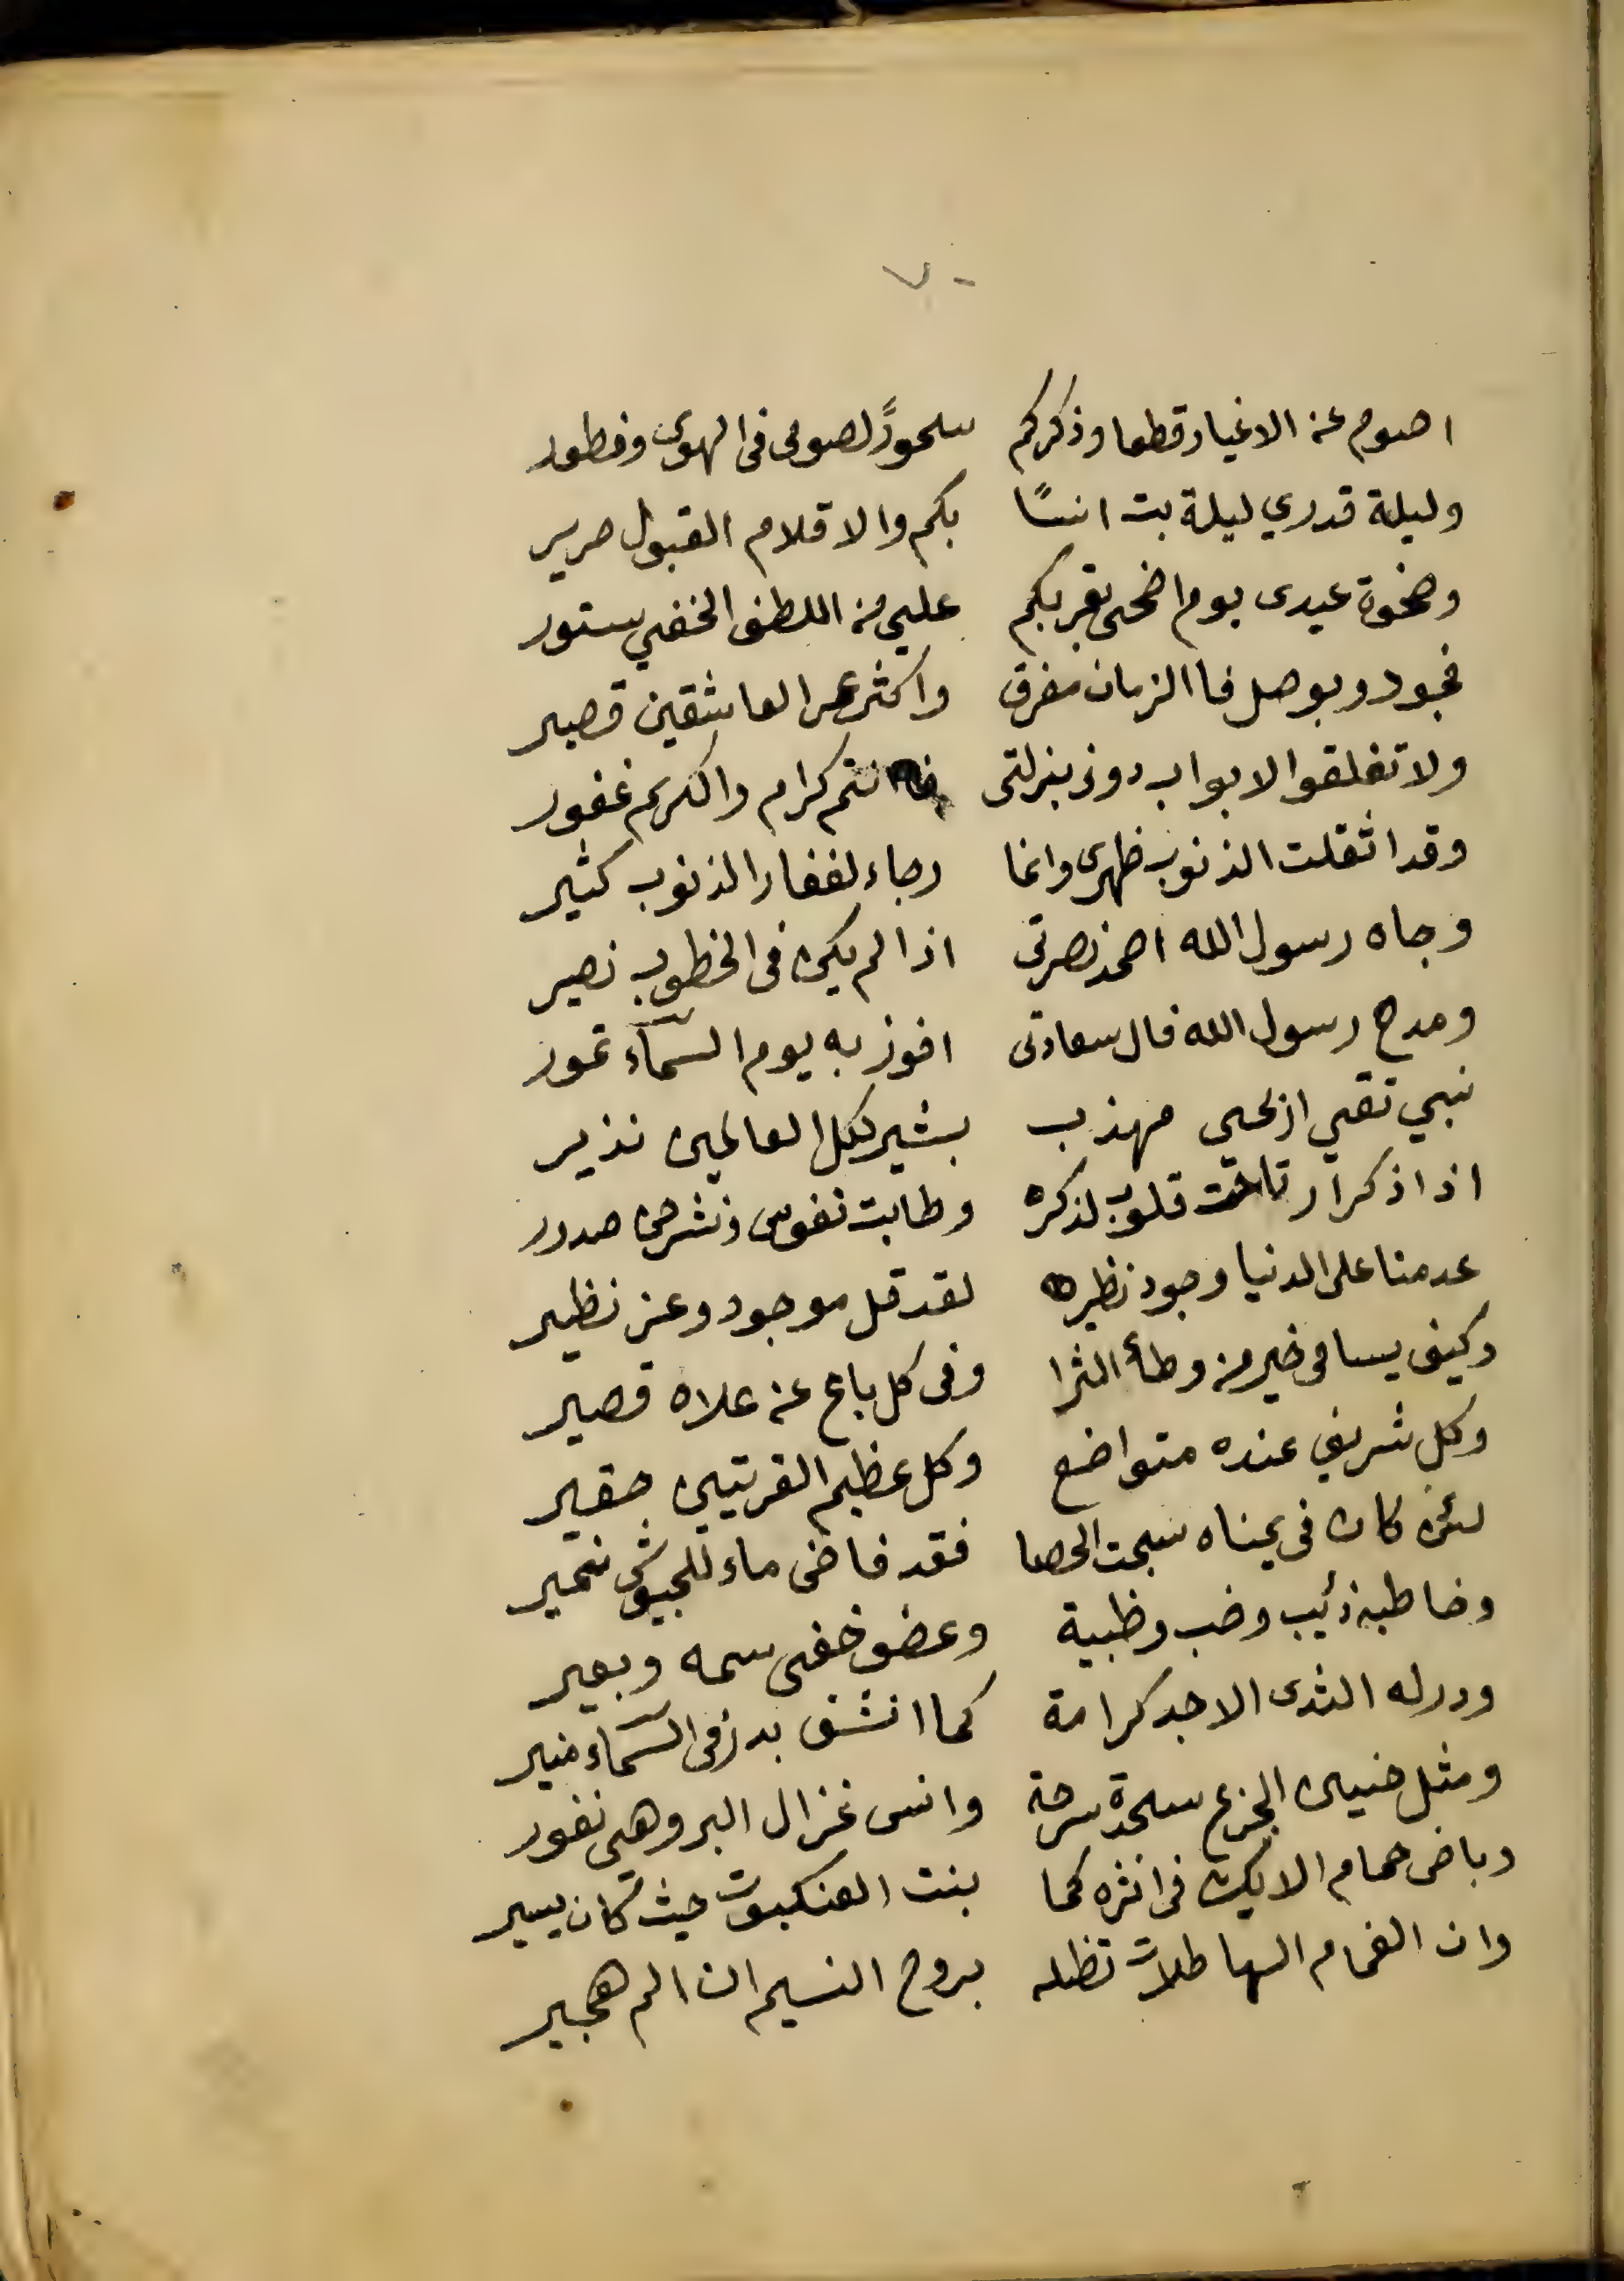 ٧٠
اصوم عن الاغيار قطعا وذكركم سحورً لصومى فى الهوى وفطور
وليلة قدري ليلة بت انسًا بكم والاقلام القبول صرير
وضحوة عيدى يوم اضحى بقربكم علي من اللطف الخفي ستور
فجودو بوصل فاالزمان مفرق واكثر عمر العاشقين قصير
ولا تغلقوا الابواب دونى بزلتى فانتم كرام والكريم غفور
وقد اثقلت الذنوب ظهرى وانما رجاء لغفار الذنوب كثير
وجاه رسول الله احمد نصرتى اذا لم يكن فى الخطوب نصير
ومدح رسول الله فال سعادتى افوز به يوم السماء تمور
نبي تقي اريحى مهذب بشير لكل العالمين نذير
اذا ذكر ارتاحت قلوب لذكره وطابت نفوس ونشرحن صدور
عدمنا على الدنيا وجود نظيره لقد قل موجود وعز نظير
وكيف يسامى خير من وطأ الثرا وفى كل باع عن علاه قصير
وكل شريف عنده متواضع وكل عظيم القريتين حقير
لئن كان فى يمناه سبحت الحصا فقد فاض ماء للجيوش نمير
وخاطبه ذئيب وضب وظبية وعضو خفى سمه وبعير
ودر له الثدى الاجد كرامة كما انشق بدر فى السماء منير
ومثل حنين الجزع سحدة سرحة وانس غزال البر وهي نفور
وباض حمام الايك فى اثره كما بنت العنكبوت حيث كان يسير
وان الغمام الهاطلات تظله بروح النسيم ان الم هجير